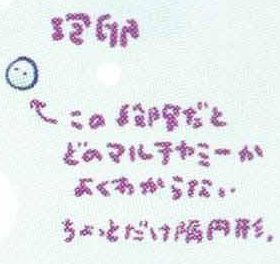 この だと
どのマルチヤミーか
よくわからない..
ちょっとだけ楕円形.